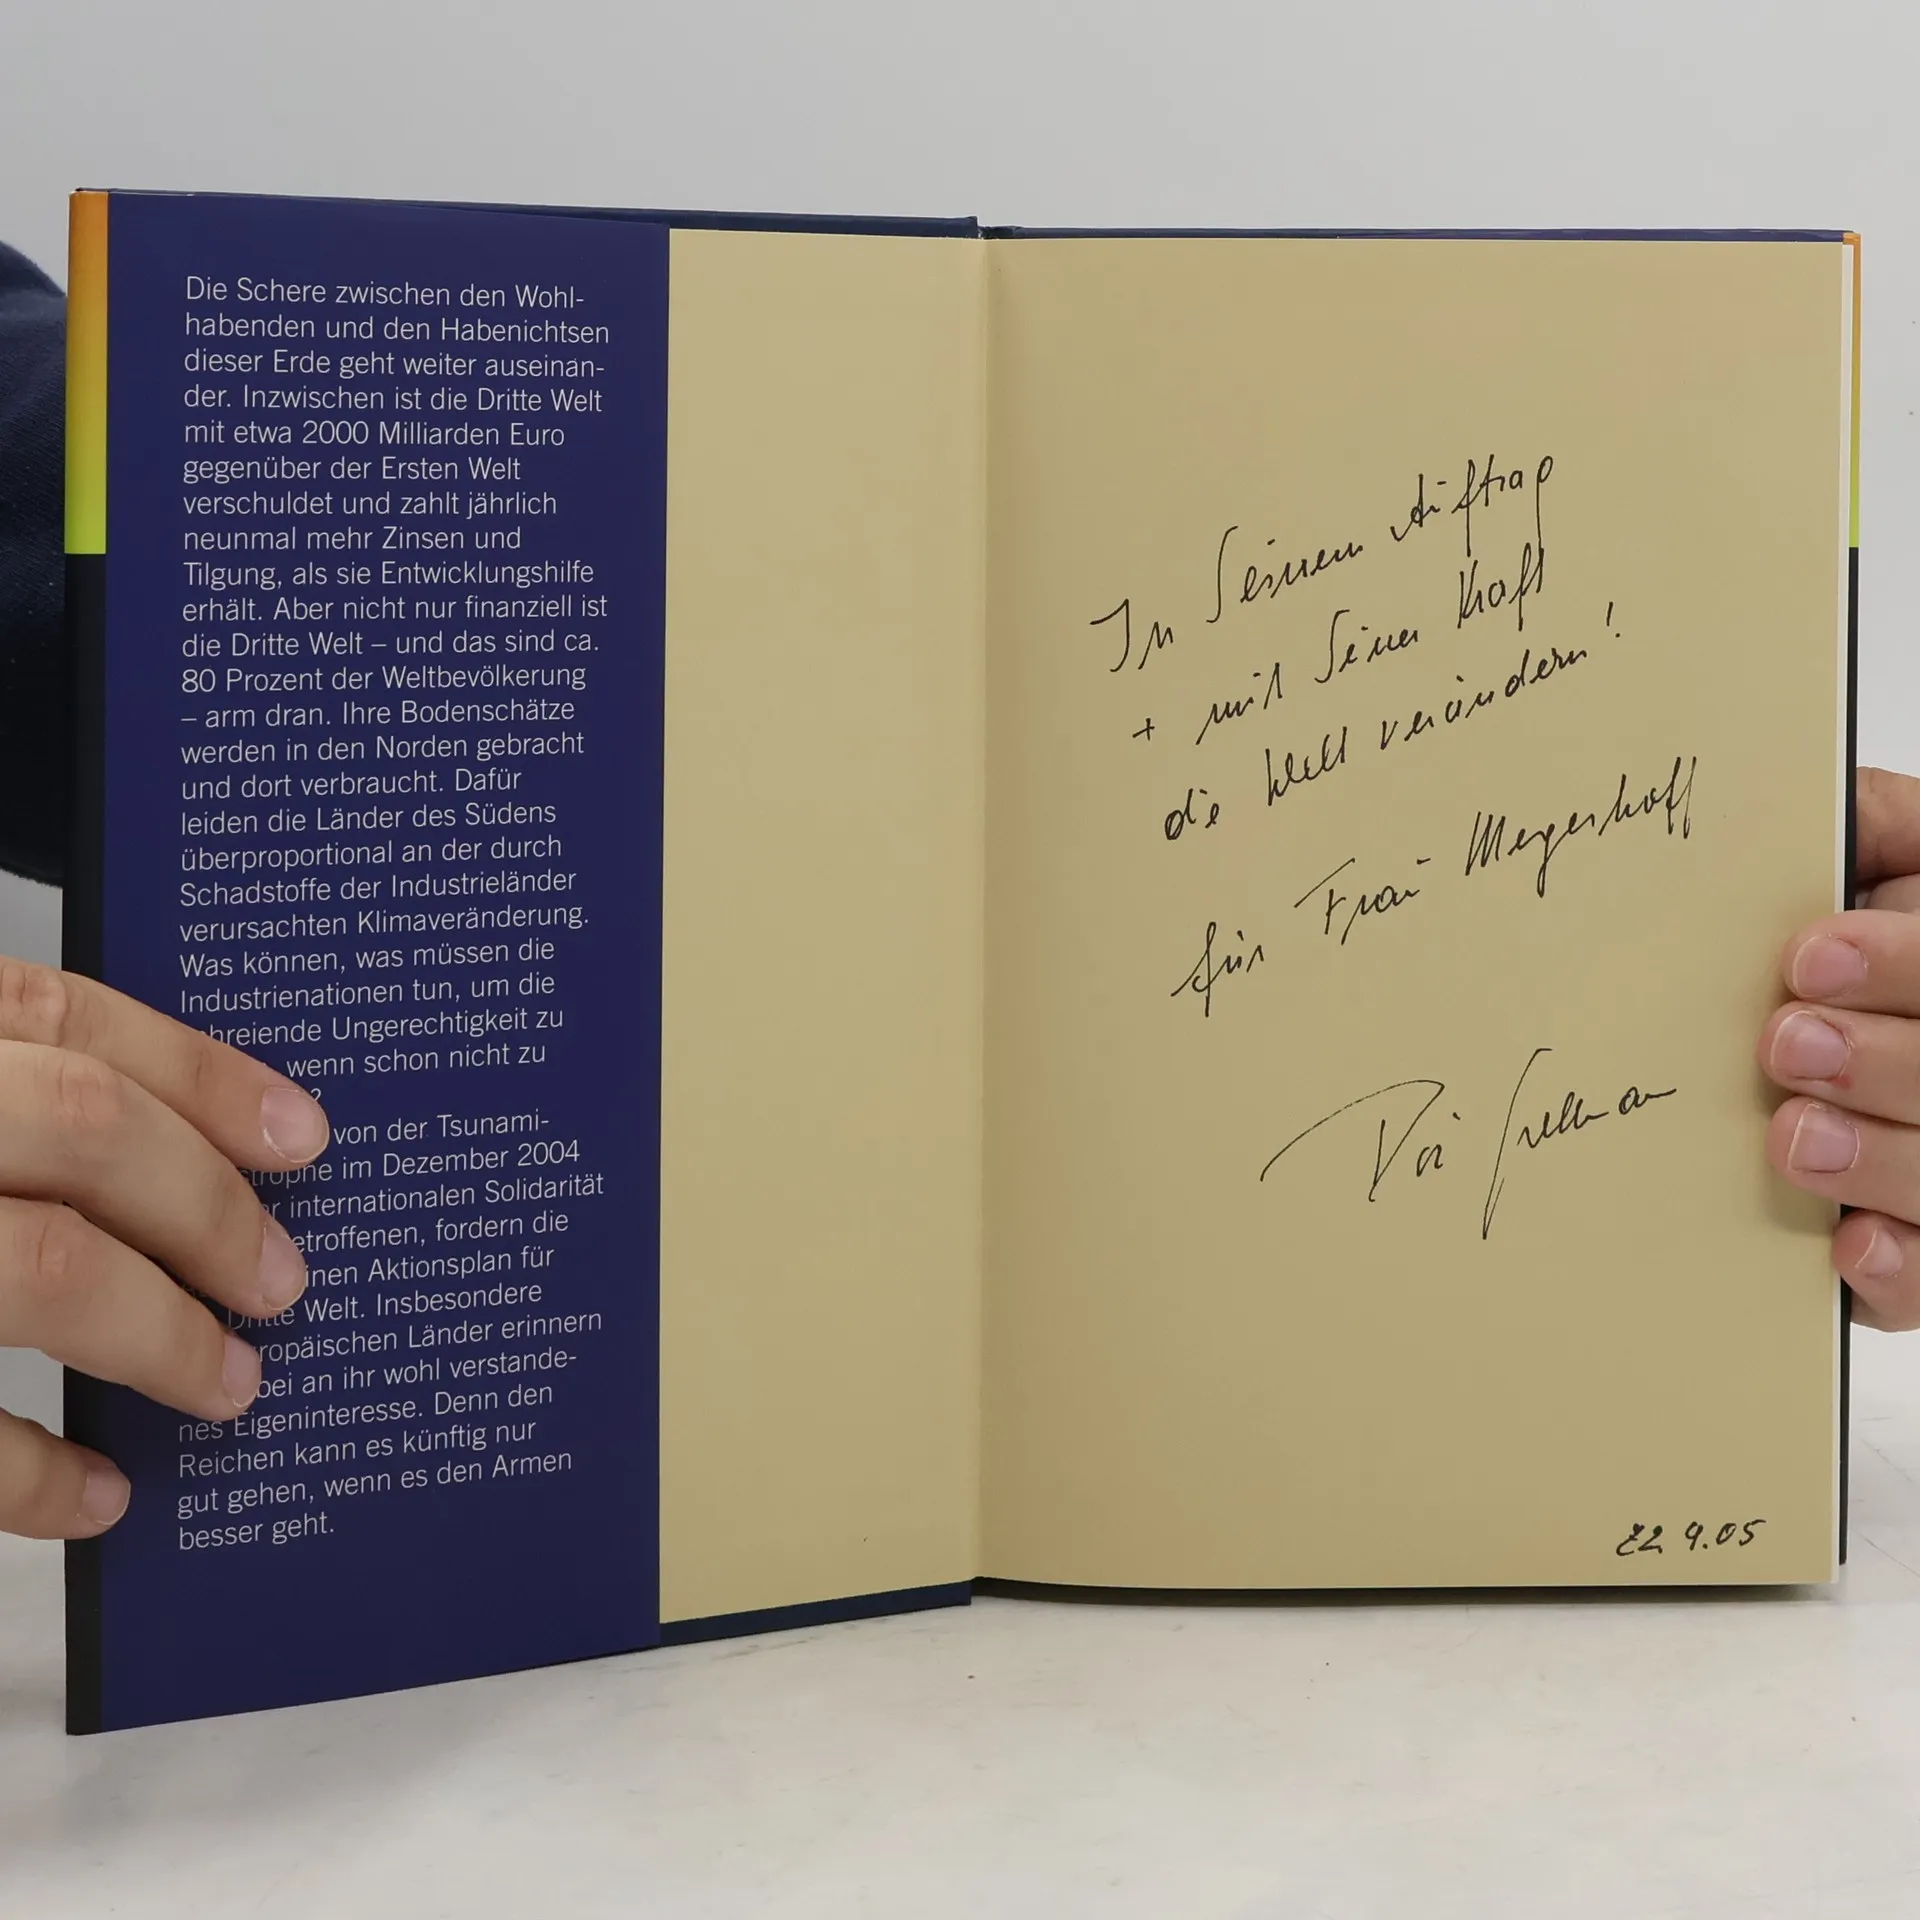 Die Schere zwischen den Wohl-
habenden und den Habenichtsen
dieser Erde geht weiter auseinan-
der. Inzwischen ist die Dritte Welt
mit etwa 2000 Milliarden Euro
gegenüber der Ersten Welt
verschuldet und zahlt jährlich
neunmal mehr Zinsen und
Tilgung, als sie Entwicklungshilfe
erhält. Aber nicht nur finanziell ist
die Dritte Welt – und das sind ca.
80 Prozent der Weltbevölkerung
– arm dran. Ihre Bodenschätze
werden in den Norden gebracht
und dort verbraucht. Dafür
leiden die Länder des Südens
überproportional an der durch
Schadstoffe der Industrieländer
verursachten Klimaveränderung.
Was können, was müssen die
Industrienationen tun, um die
hreiende Ungerechtigkeit zu
, wenn schon nicht zu
?
von der Tsunami-
strophe im Dezember 2004
r internationalen Solidarität
etroffenen, fordern die
inen Aktionsplan für
Dritte Welt. Insbesondere
ropäischen Länder erinnern
bei an ihr wohl verstande-
nes Eigeninteresse. Denn den
Reichen kann es künftig nur
gut gehen, wenn es den Armen
besser geht.
In Seinem Auftrag
+ mit Seiner Kraft
die Welt verändern!
für Frau Meyerhoff
22 9.05